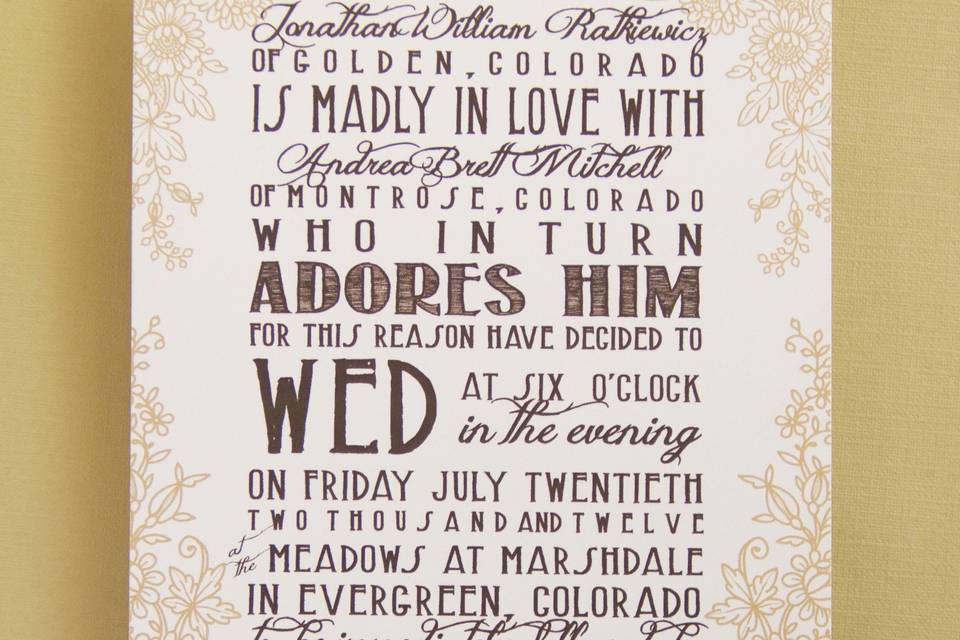 Jonathan William Ratkiewicz
OF GOLDEN, COLORADO
IS MADLY IN LOVE WITH
Andrea Brett Mitchell
OF MONTROSE, COLORADO
WHO IN TURN
ADORES HIM
FOR THIS REASON HAVE DECIDED TO
WED AT SIX O'CLOCK
in the evening
ON FRIDAY JULY TWENTIETH
TWO THOUSAND AND TWELVE
at the MEADOWS AT MARSHDALE
IN EVERGREEN, COLORADO